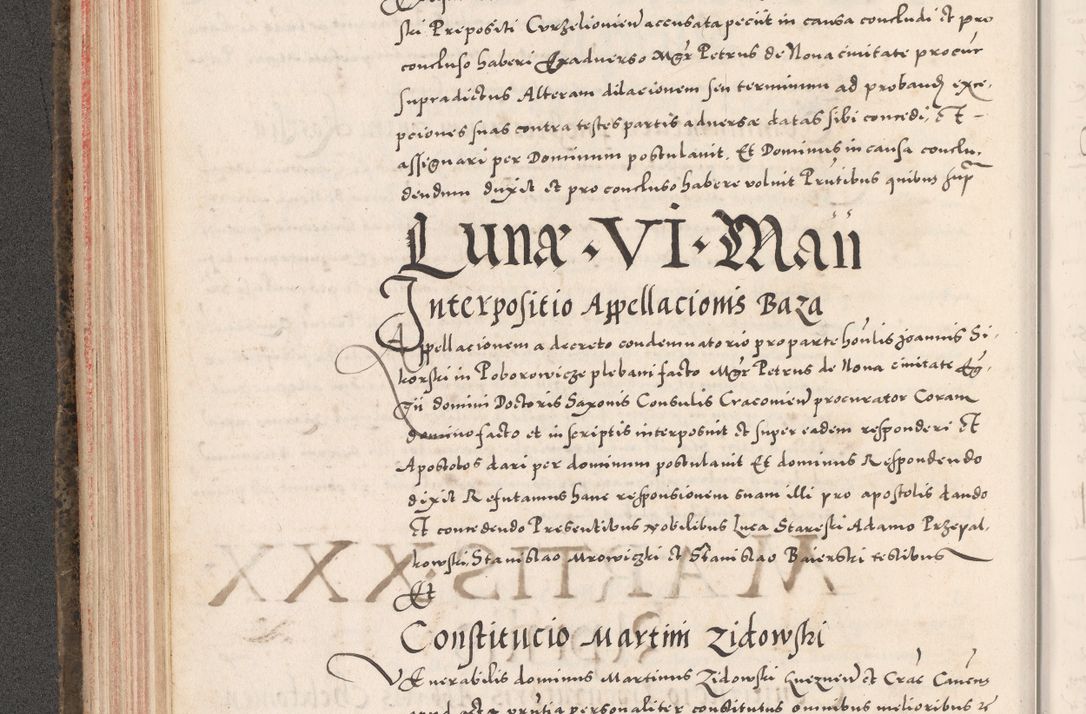 ski Prepositi Curzelioniēn accusata peciit in causa concludi et pro
concluso haberi Ex adverso Mgr̄ Petrus de Nova civitate procur
supradictus Alteram dilacionem seu terminum ad proband exce-
pciones suas contra testes partis adversæ datas sibi concedi, Et
assignari per Dominum postulavit. Et Dominus in causa conclu-
dendum duxit et pro concluso habere voluit Pr̄ntibus quibus sup̄
Lunæ · VI · Maii
Interpositio Appellacionis Baza
Appellacionem a decreto condemnatorio pro parte hon̄lis Joannis Si-
korski in Poborowicze plebani facto Mgr̄ Petrus de Nova civitate Eg-
gii domini Doctoris Saxonis Consulis Cracovien procurator Coram
domino facto et in scriptis interposuit et super eadem responderi Et
Apostolos dari per dominum postulavit Et dominus Respondendo
dixit Refutamus hanc responsionem suam illi pro apostolis dando
Et concedendo Presentibus nobilibus Luca Stareski Adamo Przepal-
kowski, Stanislao Mrowiczki et Stanislao Baierski testibus
Et
Constitucio Martini Zidowski
Venerabilis dominus Martinus Zidowski et Crac̄
apud acta pr̄ntia personaliter constitutus omnibus melioribus